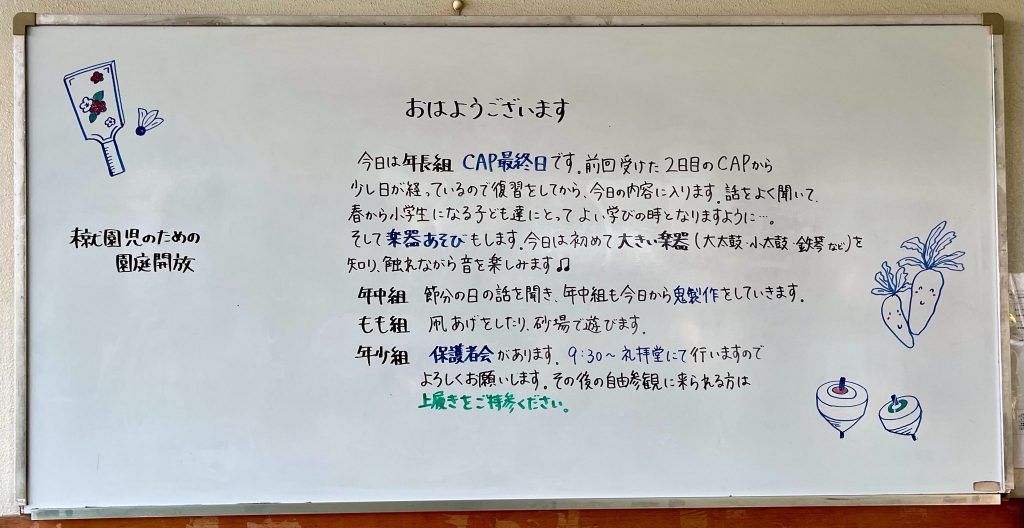 おはようございます
今日は年長組 CAP最終日です。前回受けた2日目のCAPから
少し日が経っているので復習をしてから、今日の内容に入ります。話をよく聞いて、
春から小学生になる子ども達にとって よい学びの時となりますように…。
そして楽器あそびもします。今日は初めて大きい楽器(大太鼓・小太鼓・鉄琴など)を
知り、触れながら音を楽しみます♫
年中組 節分の日の話を聞き、年中組も今日から鬼製作をしていきます。
もも組 凧あげをしたり、砂場で遊びます。
年少組 保護者会があります。9:30〜礼拝堂にて行いますので
よろしくお願いします。その後の自由参観に来られる方は
上履きをご持参ください。
未就園児のための
園庭開放